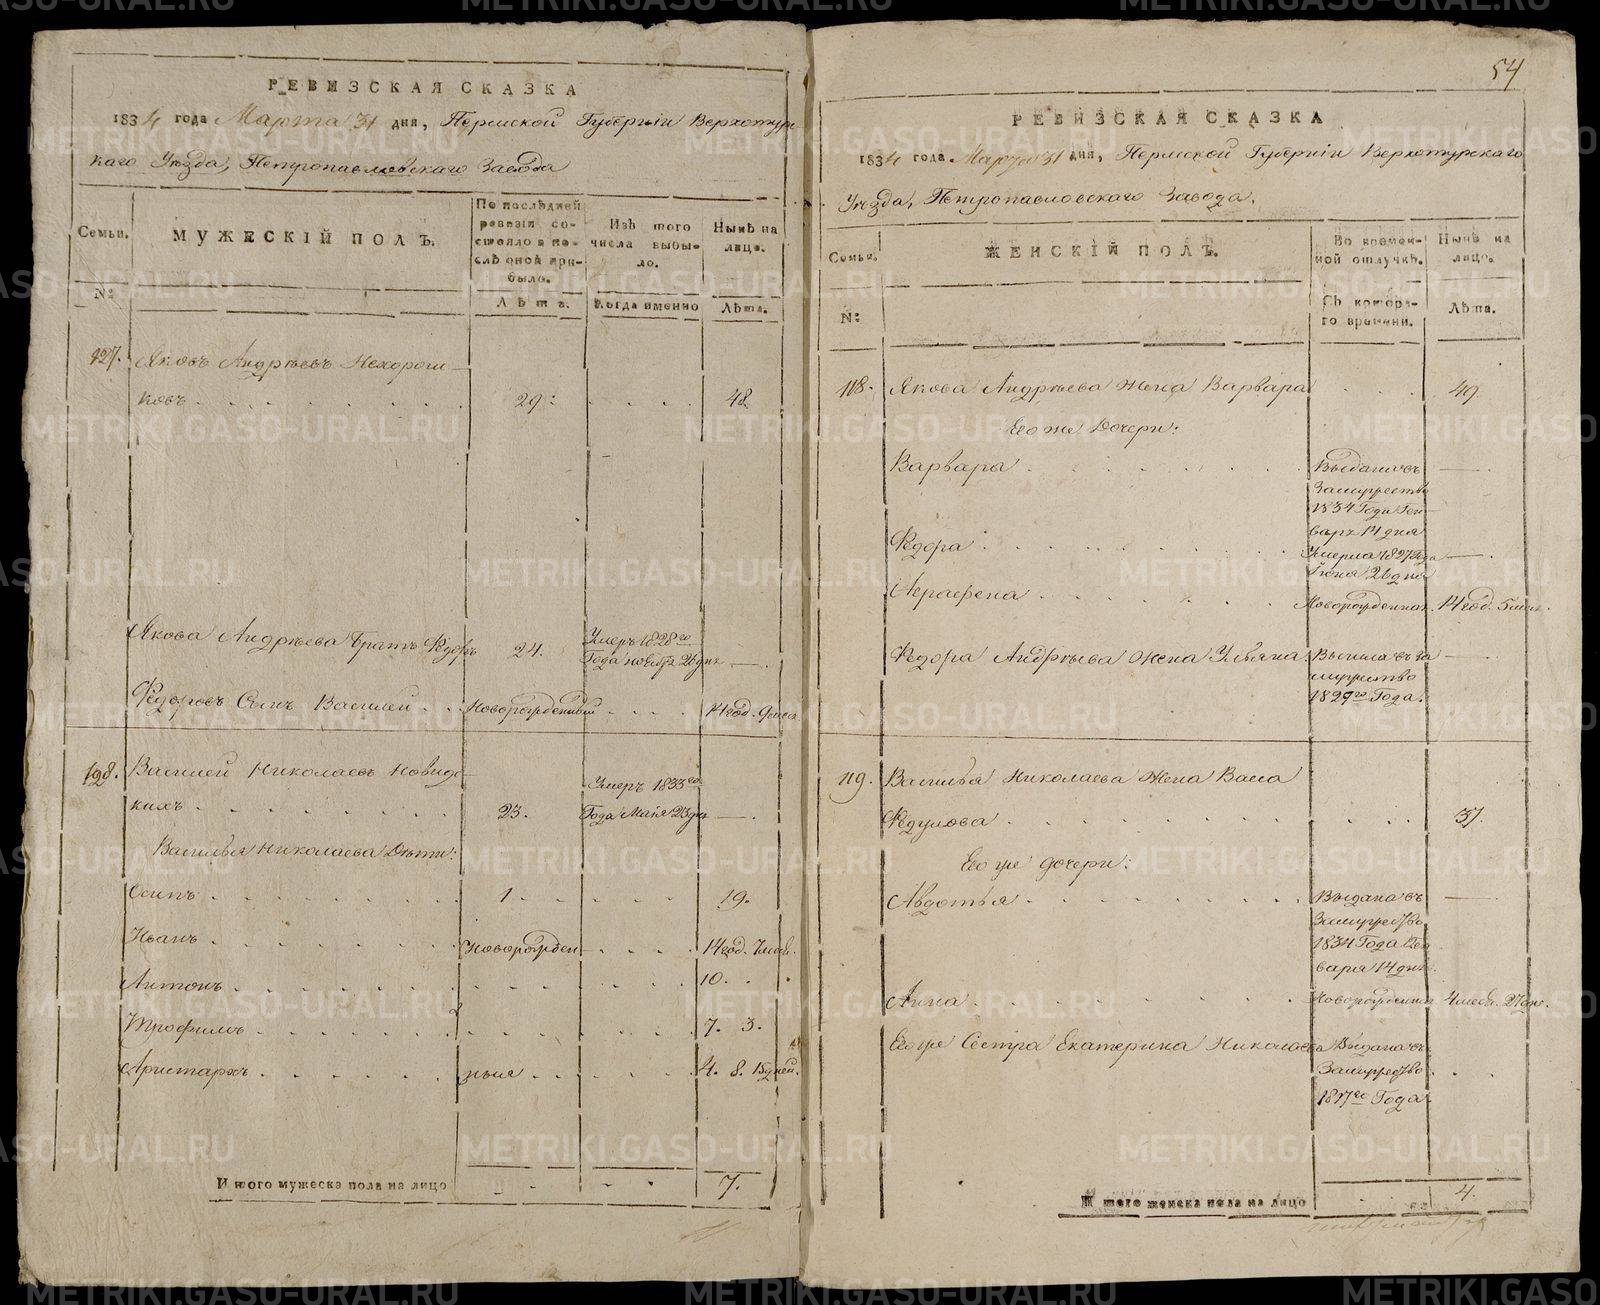 РЕВИЗСКАЯ СКАЗКА
1834 года Марта 31 дня, Пермской Губерніи Верхотур-
скаго Уѣзда, Петропавловскаго Завода
Семьи.
МУЖЕСКІЙ ПОЛЪ.
По послѣдней ревизіи состояло и послѣ оной прибыло.
Изъ того числа выбыло.
Нынѣ на лице.
№
Лѣтъ.
Когда именно
Лѣта.
127. Яковъ Андрѣевъ Нехороши-
ковъ 29. 48.
Якова Андрѣева братъ Федоръ 24. Умеръ 1828го
Года ноября 26 дня
Федоровъ Сынъ Василей Новорожденный 14 год. 9 меся
128. Василей Николаевъ
кихъ 23. Умеръ 1833го
Года Маія 23 дня
Василья Николаева Дѣти:
Осипъ 1 19.
Иванъ Новорожден 14 год. 7 меся.
Антонъ 10.
Трофимъ 7. 3.
Аристархъ 4. 8. 15 дней.
Итого мужеска пола на лицо 7.
54
РЕВИЗСКАЯ СКАЗКА
1834 года Марта 31 дня, Пермской Губерніи Верхотурскаго
Уѣзда, Петропавловскаго Завода.
Семьи.
ЖЕНСКІЙ ПОЛЪ.
Во временной отлучкѣ.
Нынѣ на лицо.
№
Съ котораго времени.
Лѣта.
118. Якова Андрѣева Жена Варвара 49.
Его же Дочери:
Варвара Выдана въ
Замужество
1834 Года Ген-
варя 14 дня
Федора Умерла 1827 Года
Іюня 26 дня
Аграфена Новорожденная 14 год. 5 меся.
Федора Андрѣева Жена Ульяна Вышла въ за
мужество
1829го Года.
119. Василья Николаева Жена Васа
Федулова 37.
Его же дочери:
Авдотья Выдана въ
Замужество
1834 Года Ген
варя 14 дня.
Анна Новорожденная 4 меся. 27 дне.
Его же Сестра Екатерина Николаева Выдана въ
Замужество
1817го Года
Итого женска пола на лицо 4.
METRIKI.GASO-URAL.RU